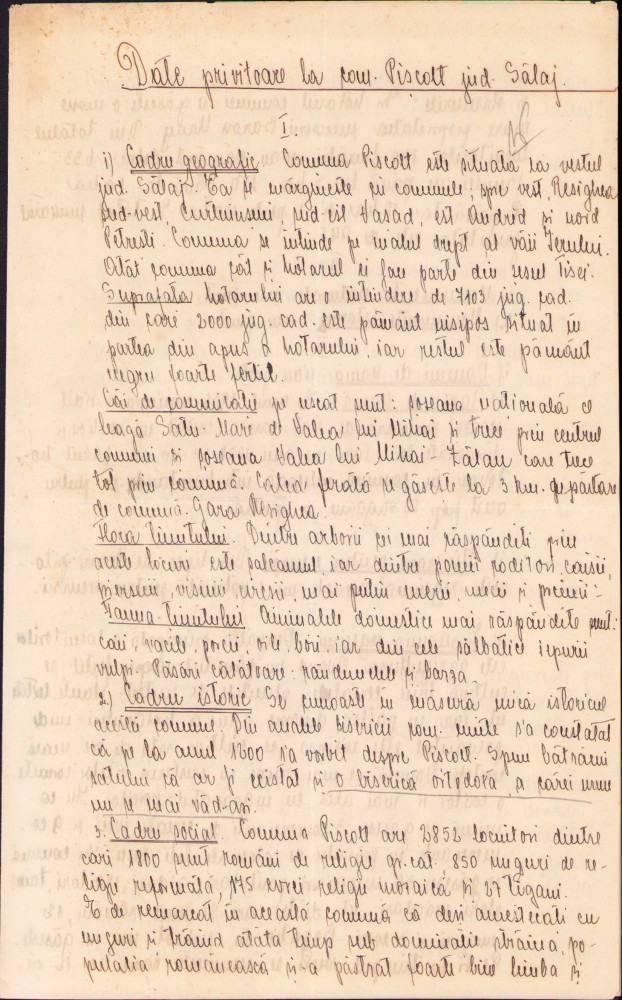 Date privitoare la com. Piscolt jud. Sălaj.
I.
1) Cadru geografic Comuna Piscolt este situată la vestul
jud. Sălaj. Ea se mărginește cu comunele; spre vest, Resighea
sud-vest, Curtuiuseni, sud-est Vasad, est Andrid și nord
Petresti. Comuna se intinde pe malul drept al văii Ierului.
Atât comuna cât și hotarul ei fac parte din sesul Tisei.
Suprafata hotarului are o intindere de 7103 jug. cad.
din care 2000 jug. cad. este pământ nisipos situat in
partea din apus a hotarului, iar restul este pământ
negru foarte fertil.
Căi de comunicatie pe uscat sunt: soseaua natională ce
leagă Satu-Mare de Valea lui Mihai și trece prin centrul
comunei si soseaua Valea lui Mihai-Zălau care trece
tot prin comună. Calea ferată se găseste la 3 km. departare
de comună. Gara Resighea.
Flora tinutului. Dintre arborii cei mai răspânditi prin
aceste locuri este salcâmul, iar dintre pomii roditori, caisii,
piersicii, visinii, ciresii, mai putin merii, nucii si prunii.-
Fauna tinutului Animalele domestice mai răspândite sunt:
caii, vacile, porcii, oile, boii, iar din cele sălbatice iepurii
vulpi. Păsări călătoare: rândunelele și barza.
2.) Cadru istoric Se cunoaste in măsură mică istoricul
acestei comune. Din analele bisericii rom. unite s'a constatat
că pe la anul 1300 s'a vorbit despre Piscolt. Spun bătrânii
satului că ar fi existat și o biserică ortodoxă, a cărei urme
nu se mai văd azi.
3. Cadru social Comuna Piscolt are 2852 locuitori dintre
cari 1800 sunt români de religie gr. cat. 850 unguri de re-
ligie reformată, 175 evrei religie mozaică și 27 tigani.
E de remarcat in această comună că desi amestecati cu
unguri și trăind atâta timp sub dominatie străină, po-
pulatia românească și-a păstrat foarte bine limba și